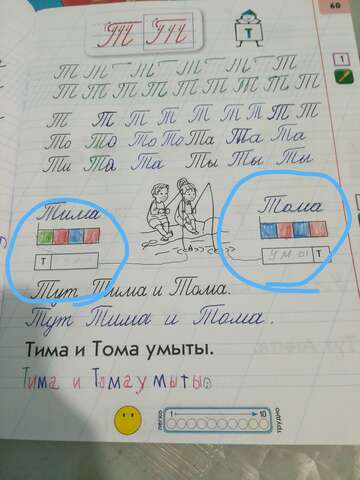 Т Т
60
Т
1
Т Т Т Т Т Т Т
Т Т Т Т Т Т Т Т Т Т
Т Т Т Т Т Т Т Т Т
То То То То Та Та Та
Ти Та Та Ты Ты Ты
Тима Тома
Т умы Т
Тут Тима и Тома.
Тут Тима и Тома.
Тима и Тома умыты.
Тима и Тома умыты.
легко 1 10 трудно